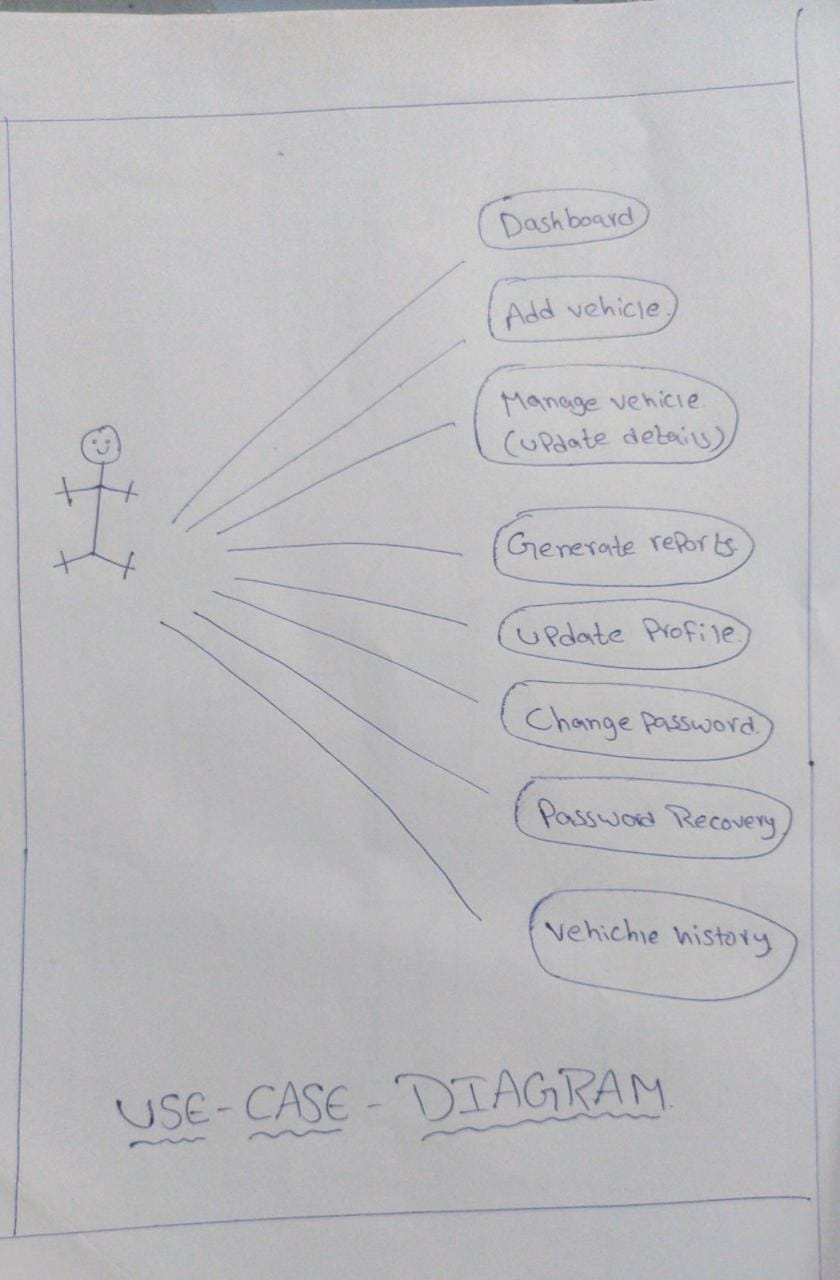 Dashboard
Add vehicle.
Manage vehicle
(update details)
Generate reports
Update Profile.
Change password.
Password Recovery
Vehichle history
USE-CASE-DIAGRAM.